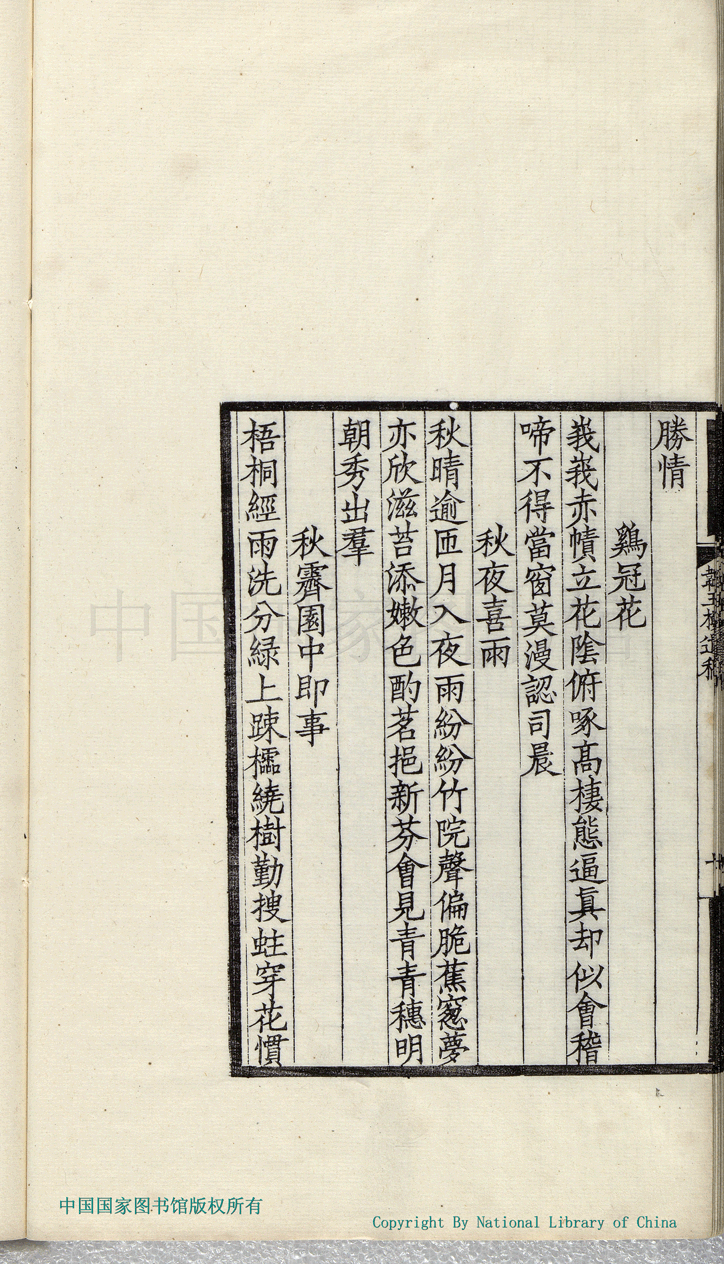 勝情
鷄冠花
峩峩赤幘立花陰俯啄高棲態逼真却似會稽
啼不得當窗莫漫認司晨
秋夜喜雨
秋晴逾匝月入夜雨紛紛竹院聲偏脆蕉窻夢
亦欣滋苔添嫩色酌茗挹新芬會見青青穗明
朝秀出羣
秋霽園中即事
梧桐經雨洗分緑上踈櫺繞樹勤搜蛀穿花慣
中国国家图书馆版权所有
Copyright By National Library of China